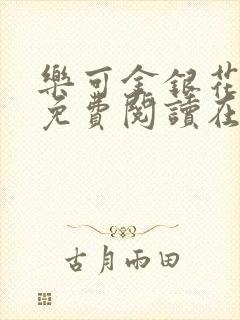 樂可金銀花
免費閱讀在
古月雨田